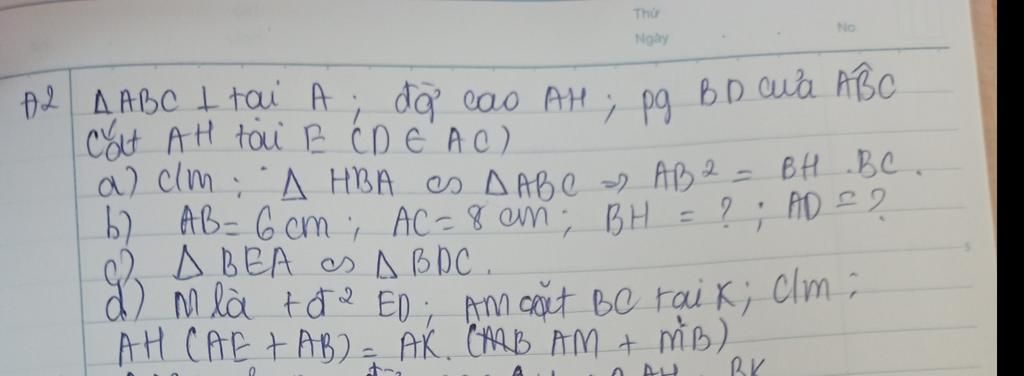 Thứ
Ngày
No
A2 Δ ABC ⊥ tại A ; đg̀ cao AH ; pg BD của AB̂C
cắt AH tại E (D ∈ AC)
a) C/m : Δ HBA ∽ Δ ABC ⇒ AB² = BH . BC .
b) AB = 6 cm ; AC = 8 cm ; BH = ? ; AD = ?
c) Δ BEA ∽ Δ BDC .
d) M là t đ² ED ; AM cắt BC tại K ; C/m :
AH (AE + AB) = AK . (AM + MB)
BK